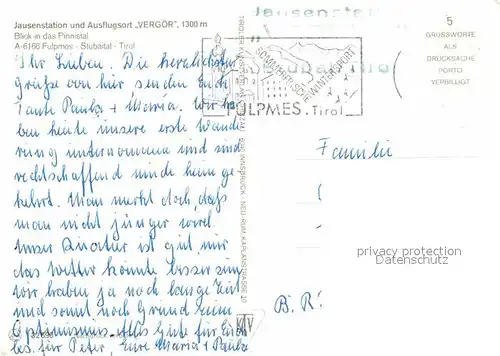 Jausenstation und Ausflugsort „VERGÖR", 1300 m
Blick in das Pinnistal
A-6166 Fulpmes - Stubaital - Tirol
Ihr Lieben. Die herzlichsten
Grüße von hier senden Euch
Tante Paula + Maria. Wir ha-
ben heute unsere erste Wande
rung unternommen und sind
rechtschaffend müde heimge
kehrt. Man merkt doch, daß
man nicht jünger wird.
Unser Quatier ist gut, nur
das Wetter könnte besser sein,
wir haben ja noch lange Zeit
und somit noch Grund zum
Optimismus. Alles Gute für Euch
bes. für Peter, Eure Maria + Paula
TIROLER KUNSTVERLAG
INNSBRUCK - NEU-RUM, KAPLANSTRASSE
KTV
Jausenstat
SOMMERFRISCHE WINTERSPORT
FULPMES · Tirol
5
GRUSSWORTE
ALS
DRUCKSACHE
PORTO
VERBILLIGT
Familie
B. R.
privacy protection
Datenschutz